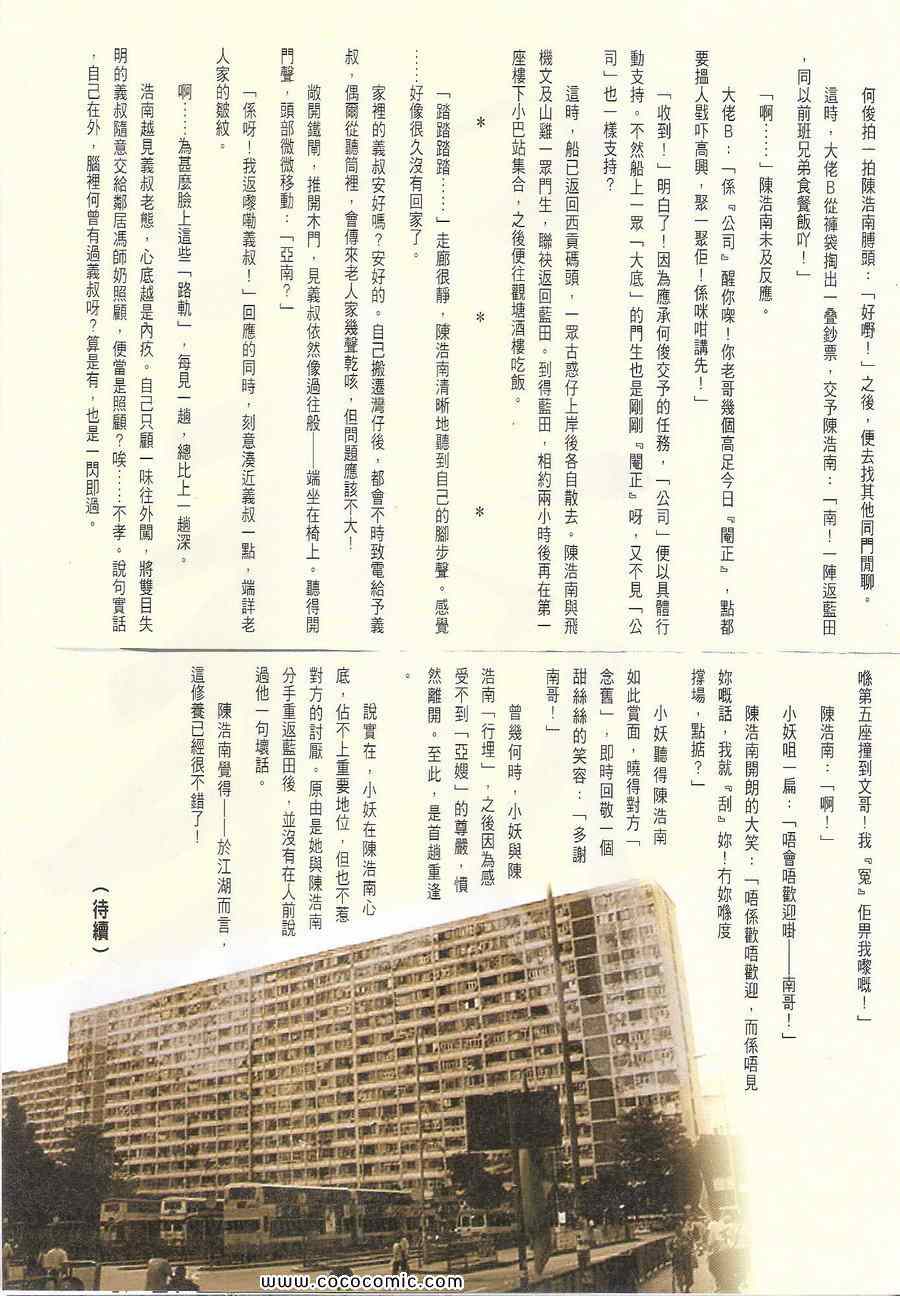 何俊拍一拍陳浩南膊頭：「好嘢！」之後，便去找其他同門閒聊。
這時，大佬Ｂ從褲袋掏出一叠鈔票，交予陳浩南：「南！一陣返藍田
，同以前班兄弟食餐飯吖！」
「啊……」陳浩南未及反應。
大佬Ｂ：「係『公司』醒你㗎！你老哥幾個高足今日『閹正』，點都
要搵人戥吓高興，聚一聚佢！係咪咁講先！」
「收到！」明白了！因為應承何俊交予的任務，「公司」便以具體行
動支持。不然船上一眾「大底」的門生也是剛剛『閹正』呀，又不見「公
司」也一樣支持？
這時，船已返回西貢碼頭，一眾古惑仔上岸後各自散去。陳浩南與飛
機文及山雞一眾門生，聯袂返回藍田。到得藍田，相約兩小時後再在第一
座樓下小巴站集合，之後便往觀塘酒樓吃飯。
＊　＊　＊
「踏踏踏踏……」走廊很靜，陳浩南清晰地聽到自己的腳步聲。感覺
……好像很久沒有回家了。
家裡的義叔安好嗎？安好的。自己搬遷灣仔後，都會不時致電給予義
叔，偶爾從聽筒裡，會傳來老人家幾聲乾咳，但問題應該不大！
敞開鐵閘，推開木門，見義叔依然像過往般——端坐在椅上。聽得開
門聲，頭部微微移動：「亞南？」
「係呀！我返嚟嘞義叔！」回應的同時，刻意湊近義叔一點，端詳老
人家的皺紋。
啊……為甚麼臉上這些「路軌」，每見一趟，總比上一趟深。
浩南越見義叔老態，心底越是內疚。自己只顧一味往外闖，將雙目失
明的義叔隨意交給鄰居馮師奶照顧，便當是照顧？唉……不孝。說句實話
，自己在外，腦裡何曾有過義叔呀？算是有，也是一閃即過。
喺第五座撞到文哥！我『冤』佢畀我嚟嘅！」
陳浩南：「啊！」
小妖咀一扁：「唔會唔歡迎啩——南哥！」
陳浩南開朗的大笑：「唔係歡唔歡迎，而係唔見
妳嘅話，我就『刮』妳！冇妳喺度
撐場，點掂？」
小妖聽得陳浩南
如此賞面，曉得對方「
念舊」，即時回敬一個
甜絲絲的笑容：「多謝
南哥！」
曾幾何時，小妖與陳
浩南「行埋」，之後因為感
受不到「亞嫂」的尊嚴，憤
然離開。至此，是首趟重逢
。
說實在，小妖在陳浩南心
底，佔不上重要地位，但也不惹
對方的討厭。原由是她與陳浩南
分手重返藍田後，並沒有在人前說
過他一句壞話。
陳浩南覺得——於江湖而言，
這修養已經很不錯了！
（待續）
www.cococomic.com